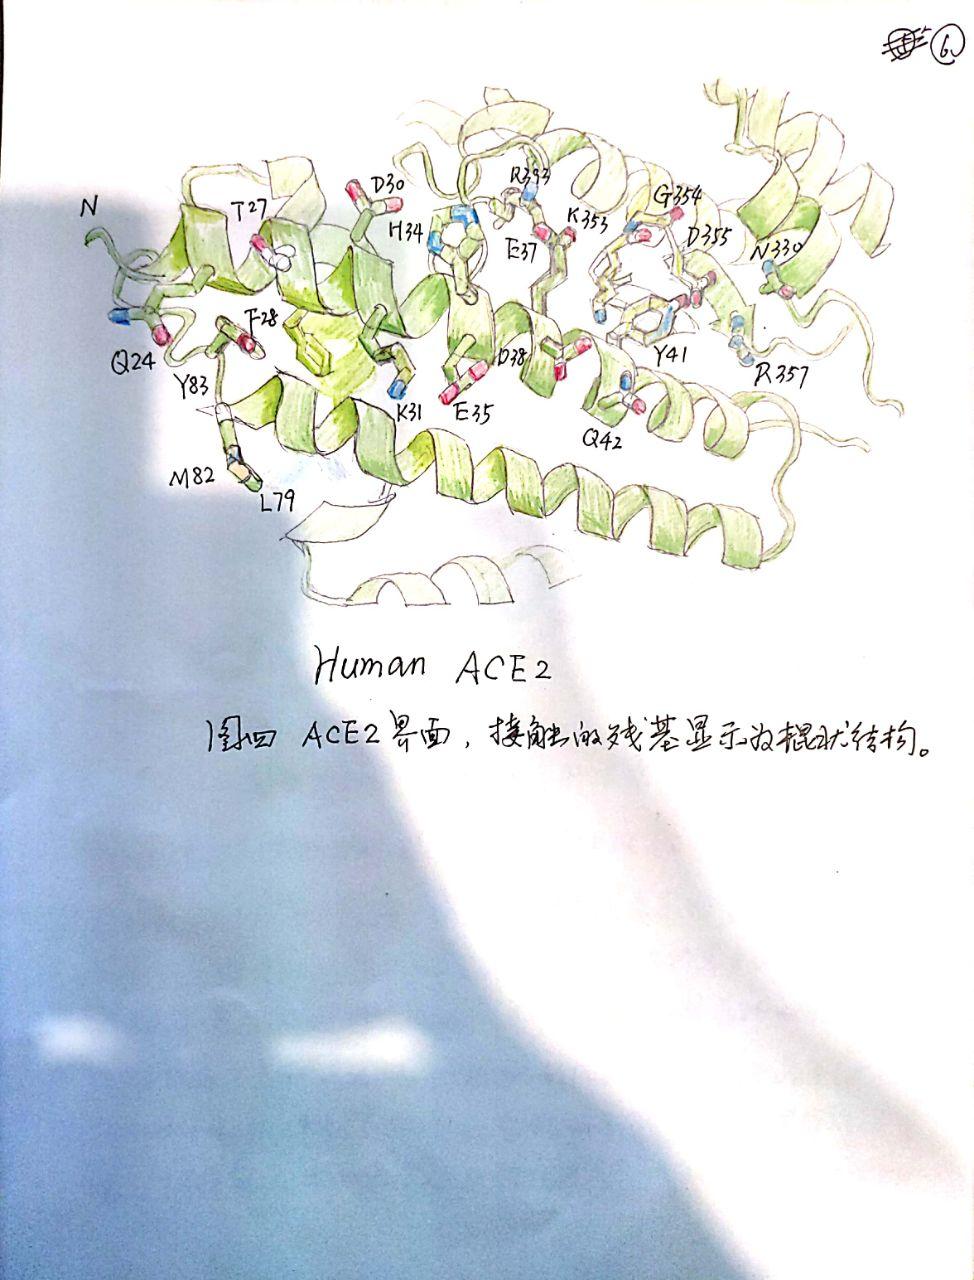 6.
N
T27
D30
H34
R393
E37
K353
G354
D355
N330
Q24
F28
Y83
K31
E35
D38
Y41
R357
Q42
M82
L79
Human ACE2
图四 ACE2界面，接触的残基显示为棍状结构。